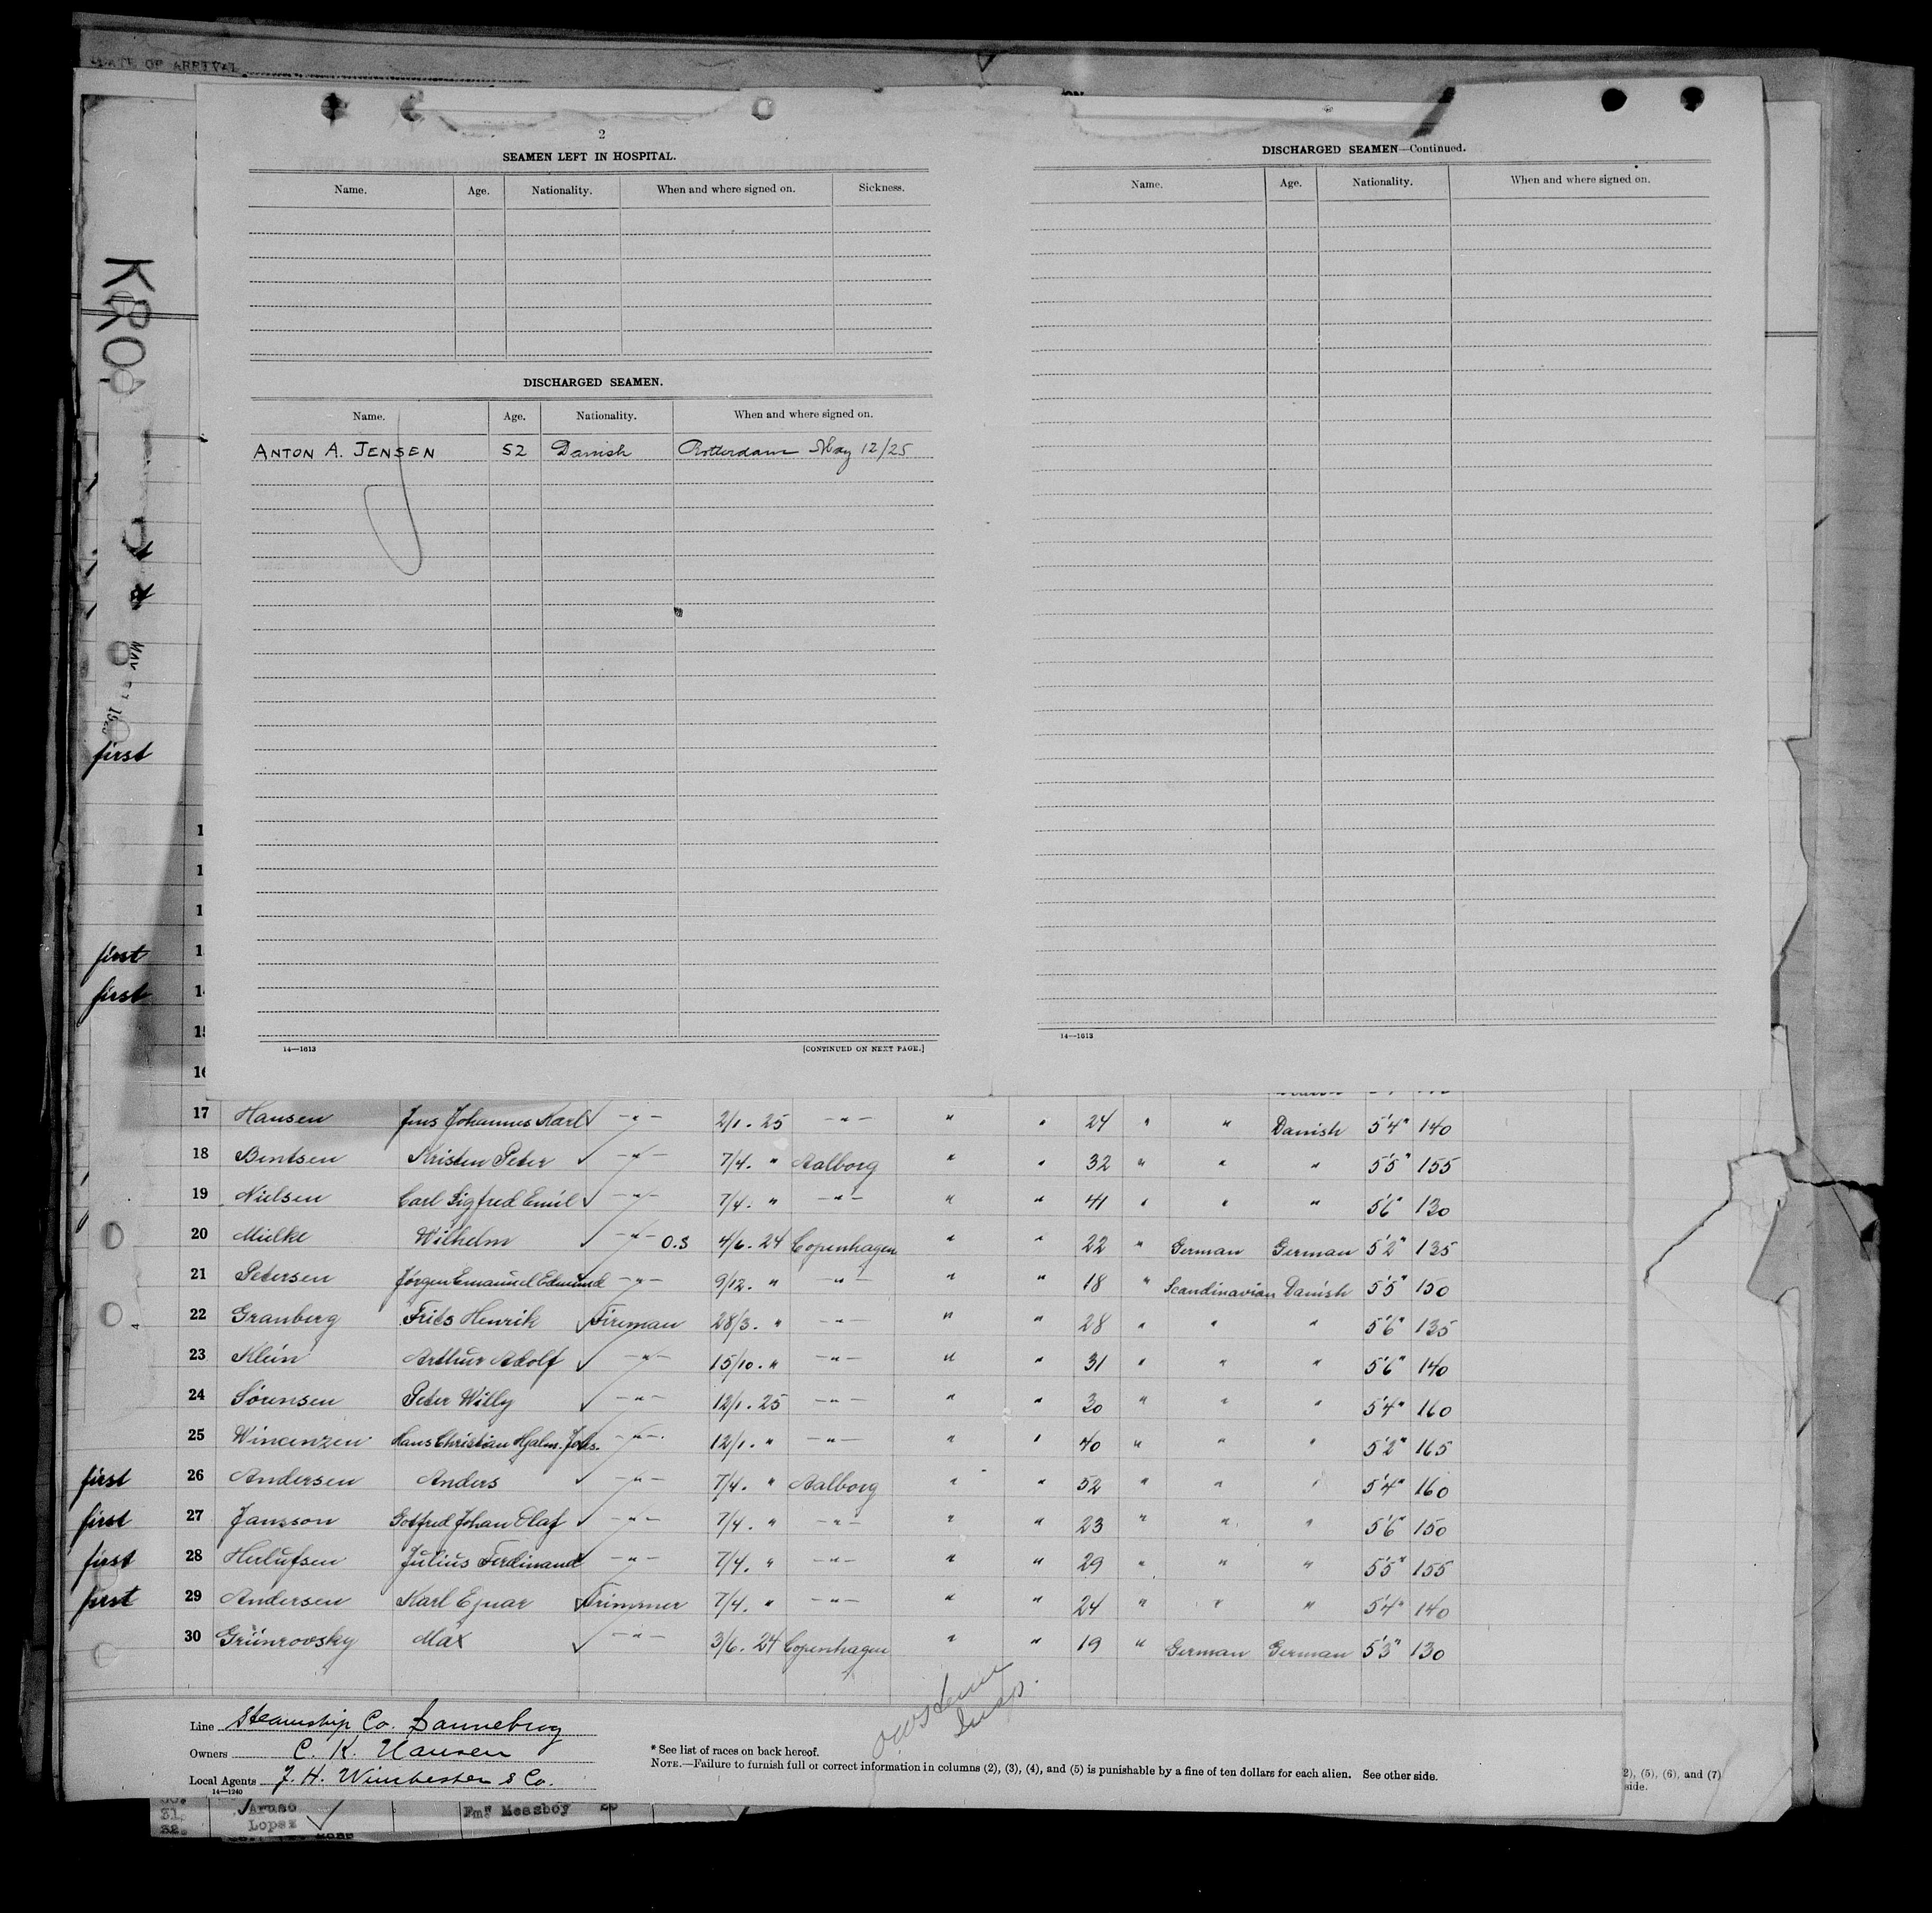 DATE OF ARRIVAL
2
SEAMEN LEFT IN HOSPITAL.
Name. Age. Nationality. When and where signed on. Sickness.
DISCHARGED SEAMEN.
Name. Age. Nationality. When and where signed on.
ANTON A. JENSEN 52 Danish Rotterdam May 12/25
14—1613 [CONTINUED ON NEXT PAGE.]
DISCHARGED SEAMEN—Continued.
Name. Age. Nationality. When and where signed on.
14—1613
first
first
first 14
15
16
17 Hansen Jens Johannes Karl ✓ —"— 2/1. 25 —"— " " 24 " " Danish 5'4" 140
18 Bentsen Kristen Peter ✓ —"— 7/4. " Aalborg " " 32 " " " 5'5" 155
19 Nielsen Carl Sigfred Emil ✓ —"— 7/4. " —"— " " 41 " " " 5'6" 130
20 Mielke Wilhelm ✓ —"— O.S 4/6. 24 Copenhagen " " 22 " German German 5'2" 135
21 Petersen Jörgen Emanuel Edmund —"— 9/12. " —"— " " 18 " Scandinavian Danish 5'5" 150
22 Granberg Frits Henrik ✓ Fireman 28/3. " —"— " " 28 " " " 5'6" 135
23 Klein Arthur Adolf ✓ —"— 15/10. " —"— " " 31 " " " 5'6" 140
24 Sörensen Peter Willy ✓ —"— 12/1. 25 —"— " " 30 " " " 5'4" 160
25 Wincenzen Hans Christian Hjalm. Johs. —"— 12/1. " —"— " " 40 " " " 5'2" 165
first 26 Andersen Anders ✓ —"— 7/4. " Aalborg " " 52 " " " 5'4" 160
first 27 Jansson Gotfred Johan Olaf ✓ —"— 7/4. " —"— " " 23 " " " 5'6" 150
first 28 Herlufsen Julius Ferdinand —"— 7/4. " —"— " " 29 " " " 5'5" 155
first 29 Andersen Karl Ejnar ✓ Trimmer 7/4. " —"— " " 24 " " " 5'4" 140
30 Grünrovsky Max ✓ —"— 3/6. 24 Copenhagen " " 19 " German German 5'3" 130
Line Steamship Co. Dannebrog
Owners C. K. Hansen
Local Agents J. H. Winchester & Co.
14—1240
Insp.
* See list of races on back hereof.
NOTE.—Failure to furnish full or correct information in columns (2), (3), (4), and (5) is punishable by a fine of ten dollars for each alien. See other side.
2), (5), (6), and (7)
side.
31. Fm. Messboy
32. Lopez